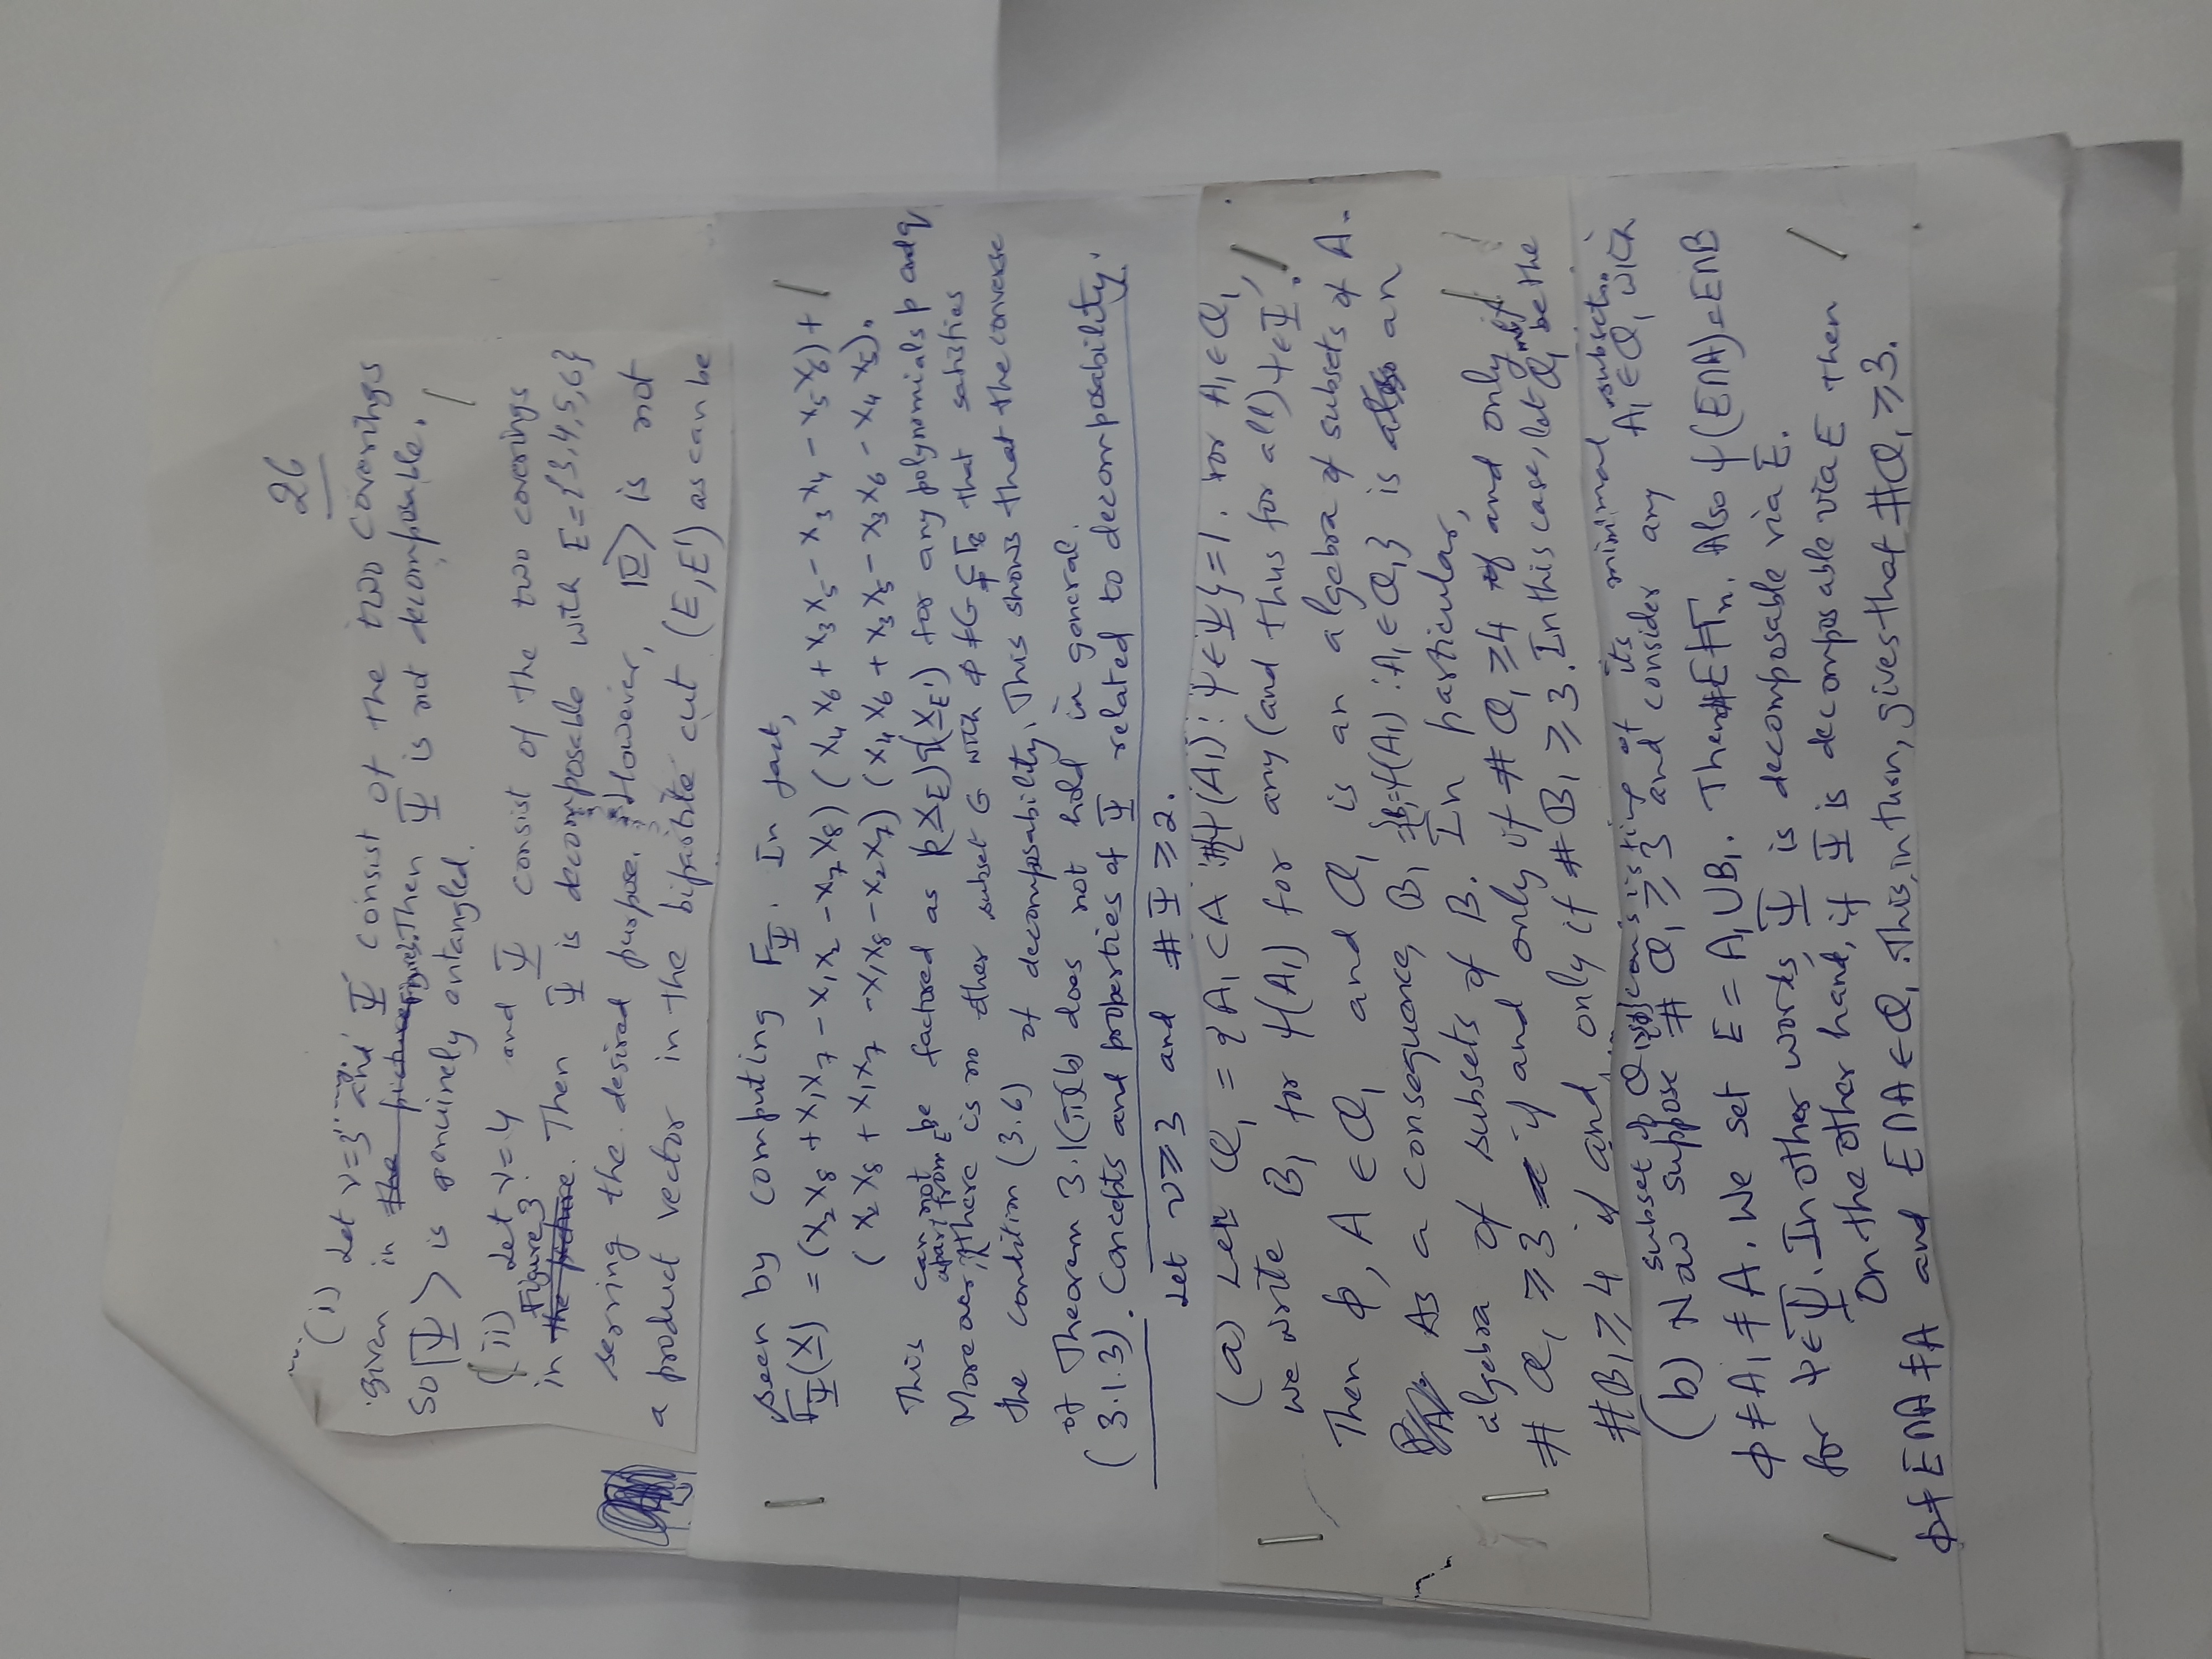 26
(i) Let ν=3 and Ψ consist of the two coverings
given in the picture Figure 3. Then Ψ is not decomposable.
So |Ψ⟩ is genuinely entangled.
(ii) Let ν=4 and Ψ consist of the two coverings
Figure 3
in the picture. Then Ψ is decomposable with E={3,4,5,6}
serving the desired purpose. However, |Ψ⟩ is not
a product vector in the bipartite cut (E,E') as can be
seen by computing F_Ψ. In fact,
F_Ψ(X) = (X₂X₈ + X₁X₇ - X₁X₂ - X₇X₈) (X₄X₆ + X₃X₅ - X₃X₄ - X₅X₆) +
(X₂X₈ + X₁X₇ - X₁X₈ - X₂X₇) (X₄X₆ + X₃X₅ - X₃X₆ - X₄X₅).
This can not be factored as p(X_E) q(X_E') for any polynomials p and q
apart from E'
Moreover, there is no other subset G with φ ≠ G ⊊ Γ₈ that satisfies
the condition (3.6) of decomposability. This shows that the converse
of Theorem 3.1(ii)(b) does not hold in general.
(3.1.3). Concepts and properties of Ψ related to decomposability.
Let ν⩾3 and #Ψ⩾2.
(a) Let 𝒜₁ = {A₁⊂A : #{ψ(A₁) : ψ∈Ψ}=1. For A₁∈𝒜₁,
we write B₁ for ψ(A₁) for any (and thus for all) ψ∈Ψ.
Then φ, A ∈ 𝒜₁ and 𝒜₁ is an algebra of subsets of A.
As a consequence, ℬ₁ = {B₁=ψ(A₁) : A₁∈𝒜₁} is also an
algebra of subsets of B. In particular,
# 𝒜₁ ⩾3 if and only if # 𝒜₁ ⩾4 if and only if
#ℬ₁⩾4 if and only if #ℬ₁⩾3. In this case, let 𝒜₁ be the
subset of 𝒜₁ consisting of its minimal subsets.
(b) Now suppose # 𝒜₁ ⩾3 and consider any A₁∈𝒜₁ with
φ≠A₁≠A. We set E = A₁∪B₁. Then φ≠E≠Γₙ. Also ψ(E∩A)=E∩B
for ψ∈Ψ. In other words, Ψ is decomposable via E.
On the other hand, if Ψ is decomposable via E then
φ≠E∩A≠A and E∩A∈𝒜₁. This, in turn, gives that #𝒜₁⩾3.